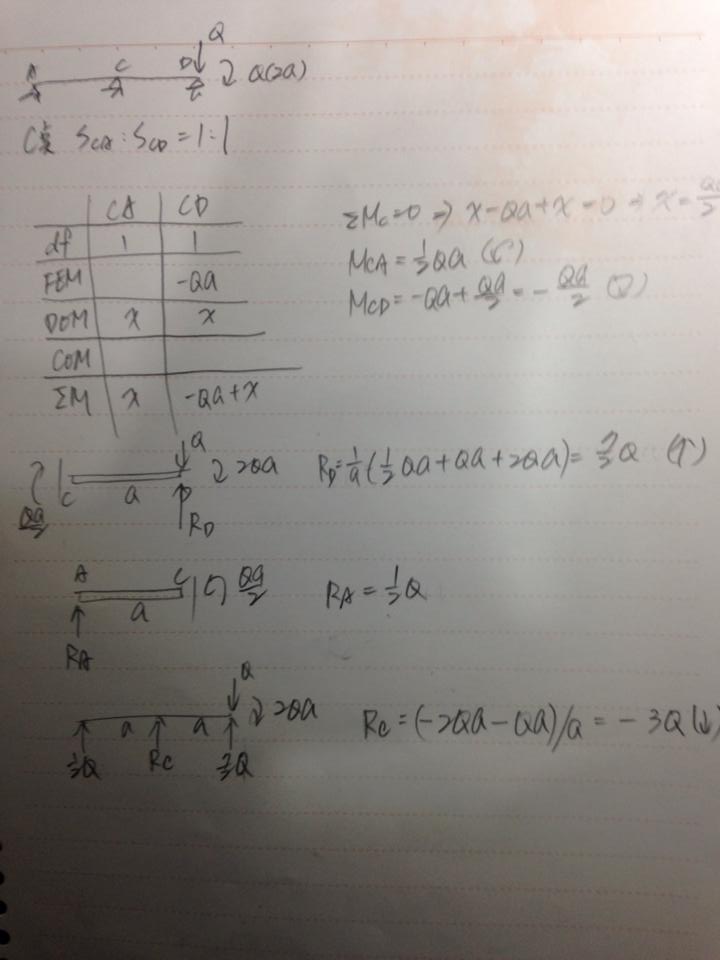 Q
A C D Q(2a)
C點 S_CA : S_CD = 1 : 1
CA CD
df 1 1
FEM -Qa
DOM x x
COM
ΣM x -Qa+x
ΣMc=0 ⇒ x-Qa+x=0 ⇒ x=Qa/2
M_CA = 1/2 Qa (↶)
M_CD = -Qa + Qa/2 = - Qa/2 (↷)
Q
2Qa
Qa/2 C a D
R_D
R_D = 1/a (1/2 Qa + Qa + 2Qa) = 7/2 Q (↑)
A C Qa/2
a
R_A
R_A = 1/2 Q
Q
2Qa
a a
1/2 Q Rc 7/2 Q
Rc = (-2Qa-Qa)/a = -3Q (↓)